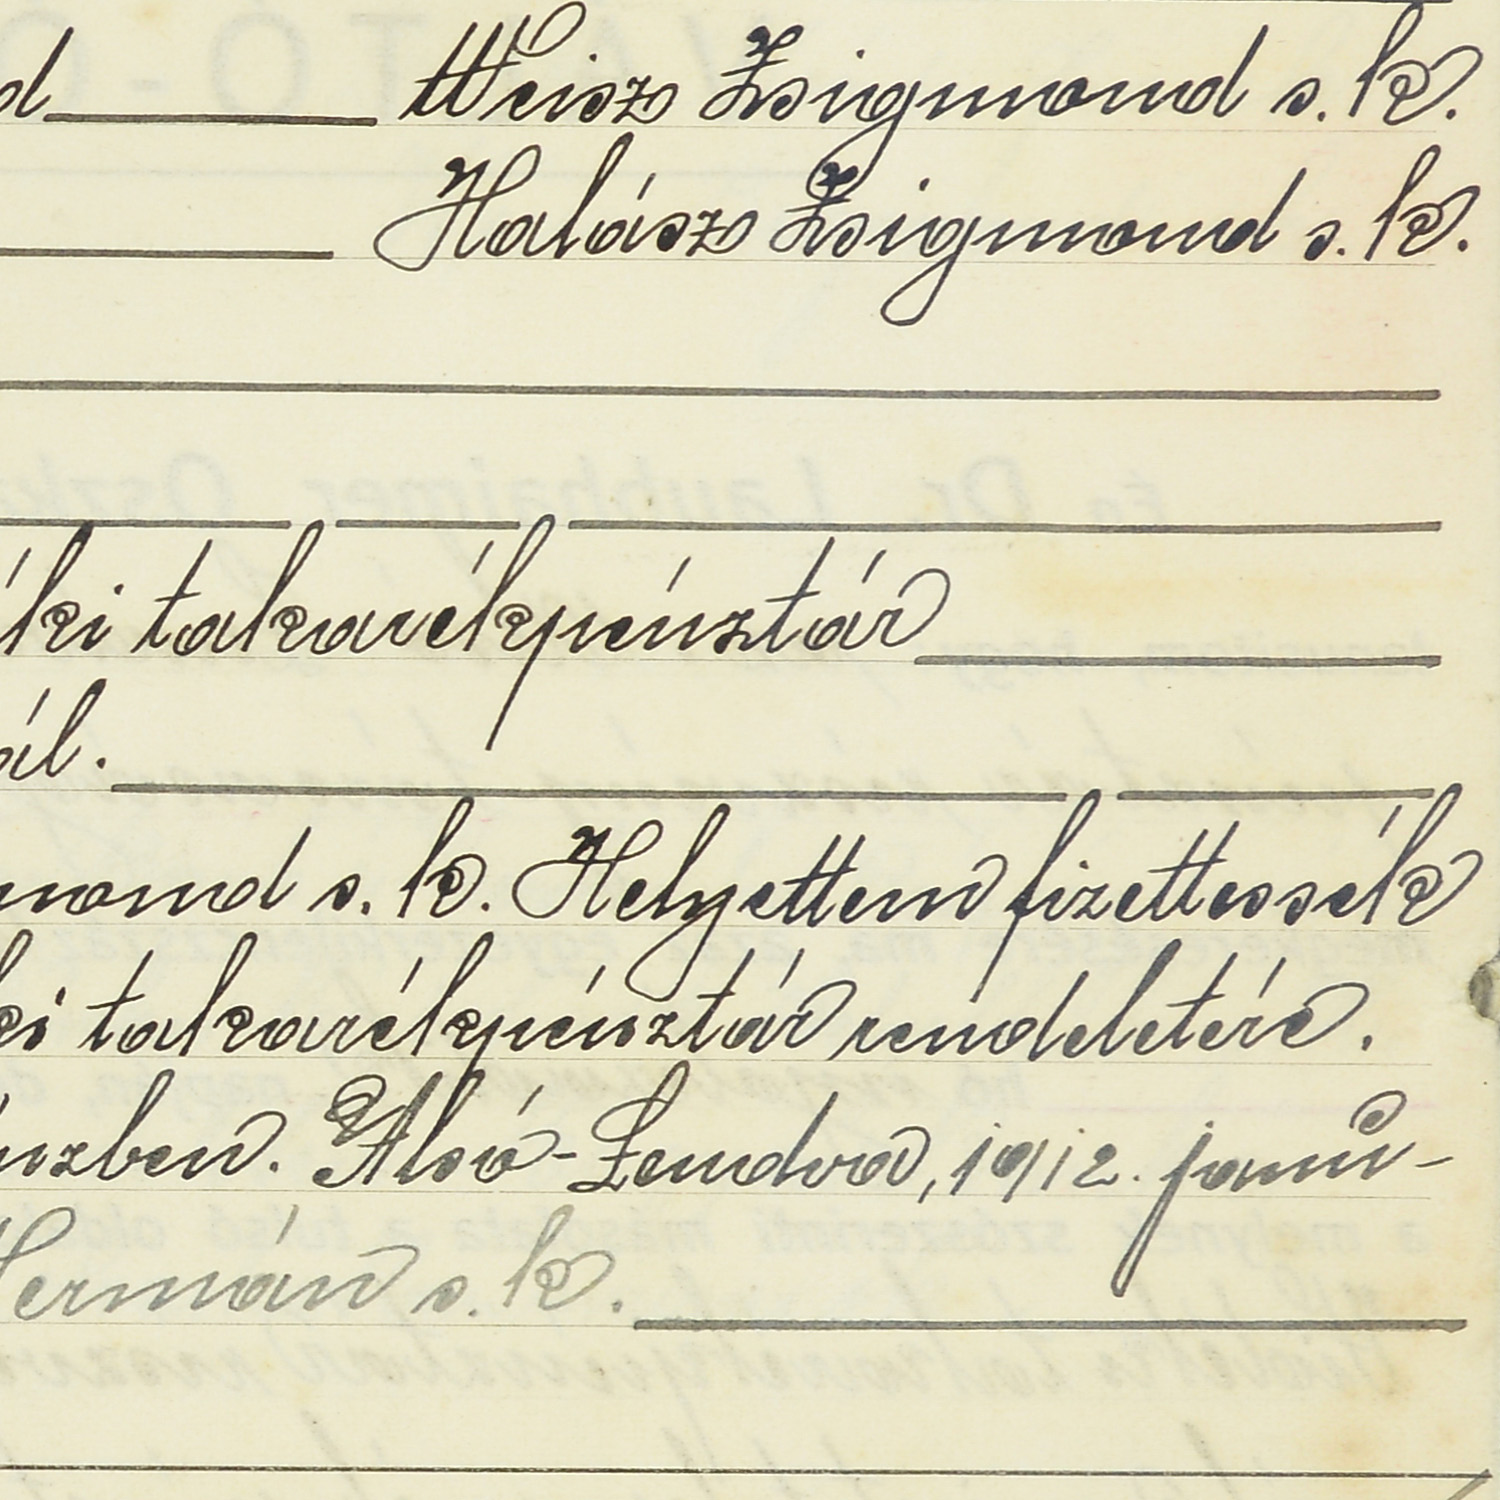 d Weisz Zsigmond s. k.
Halász Zsigmond s. k.
ki takarékpénztár
ál.
mond s. k. Helyettem fizettessék
ki takarékpénztár rendeletére.
nzben. Alsó-Lendva, 1912. janu-
Hermán s. k.